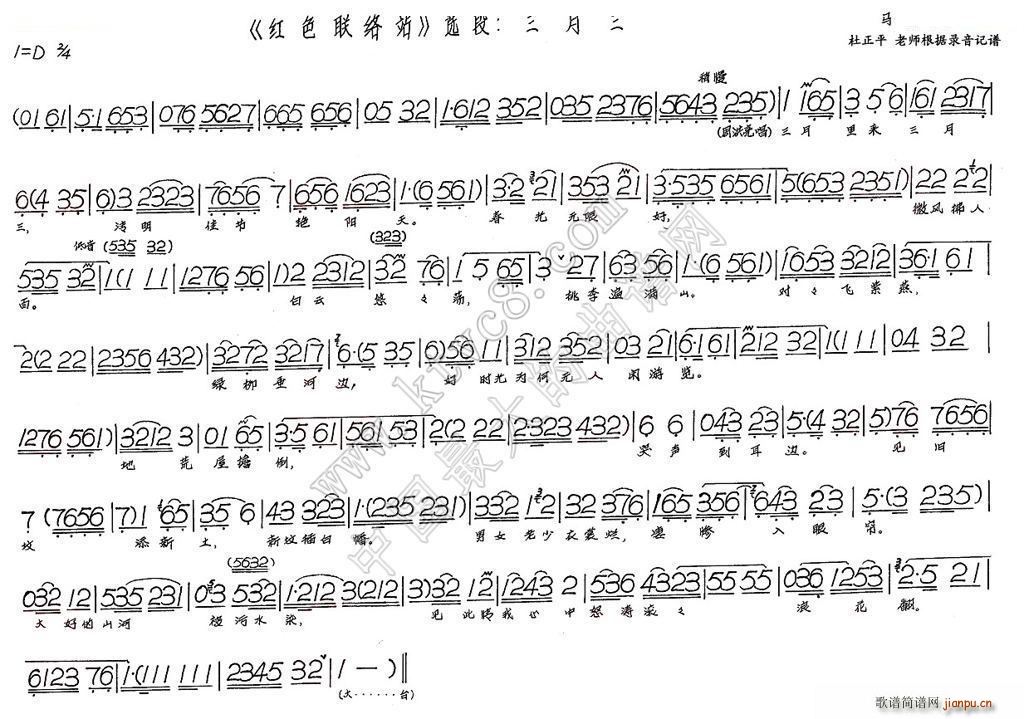 《红色联络站》选段：三月三
马
1=D 2/4
杜正平 老师根据录音记谱
稍慢
(01 61|5·1 653|076 5627|065 656|05 32|1·612 352|035 2376|5643 235)|1 165|3 5 6|161 2317|
(田洪光唱)三月 里来 三月
6(4 35|6)3 2323|7656 7|656 1623|1·(6 561)|3·2 21|353 21|3·535 6561|5(653 2351)|22 22|
三， 清明 佳节 艳阳 天。 春光 无限 好， 微风拂人
低音 (535 32) (323)
535 32|1(1 11|1276 56|1)2 2312|32 76|1 5 65|3 27|63 56|1·(6 561)|1653 3212|36·1 61|
面。 白云 悠々荡， 桃李遍满山。 对々飞紫燕，
2(2 22|2356 432)|3272 3217|6·(5 35|6)56 11|312 352|03 21|6·161|212 32|1(1 11|04 32|
绿柳垂河边， 好时光为何无人 闲游览。
1276 561)|3212 3|01 65|3·5 61|561 53|2(2 22|2·323 432)|6 6|043 23|5·(4 32|5)76 7656|
地 荒屋塌倒， 哭声到耳边。 见旧
7 (7656|7)1 65|35 6|43 323|1·(235 231)|332 02|32 376|165 356|643 23|5·(3 235)|
坟 添新土， 新坟插白幡。 男女老少衣褴烂， 凄惨入眼帘。
(5632)
032 12|535 231|03 532|1·212 3(212|3)32 12|1243 2|536 4323|55 55|036 1253|2·5 21|
大好的山河 被污水染， 见此情我心中怒涛滚々 浪花翻。
6123 76|1·(111 111|2345 32|1 —)‖
(大······台)
www.kmyc8.com
中国最大的曲谱网
歌谱简谱网
jianpu.cn